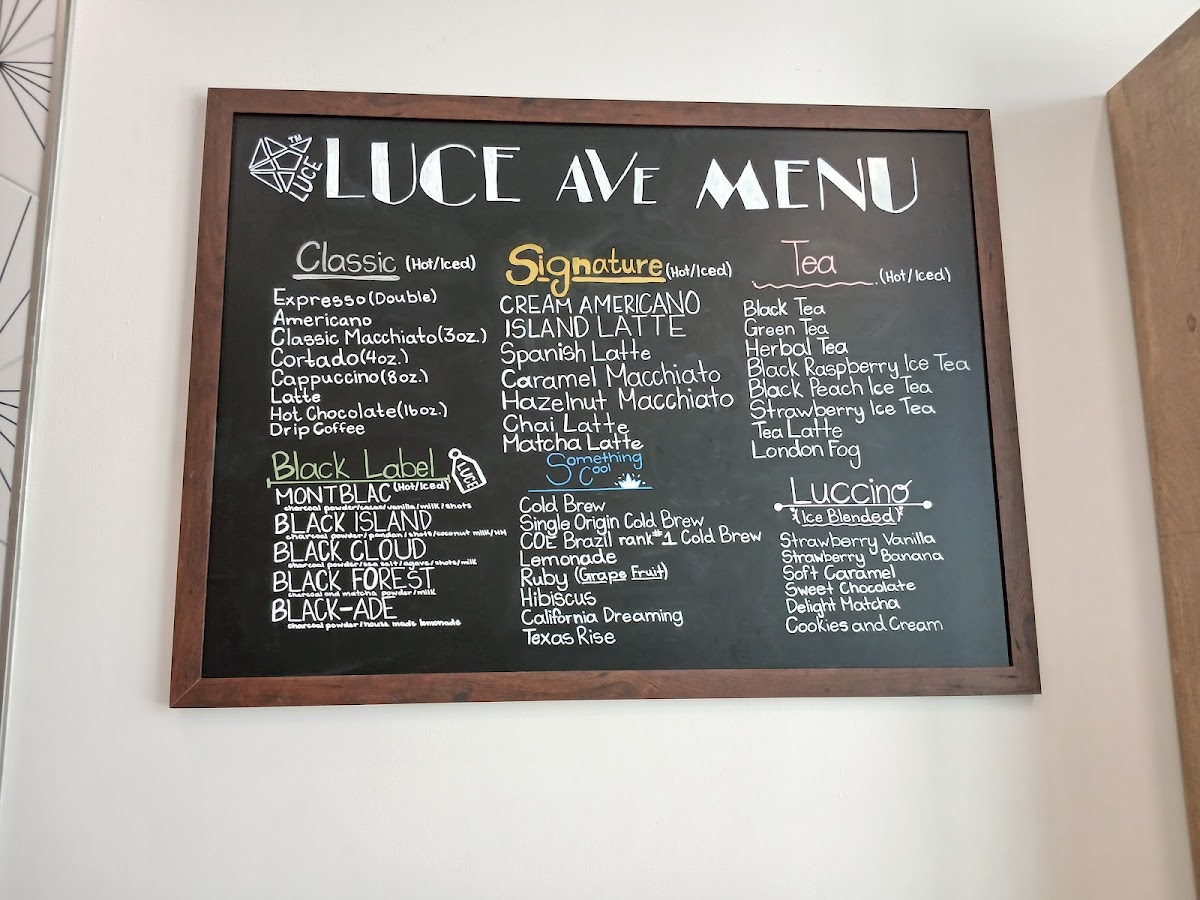 LUCE™
LUCE AVE MENU
Classic (Hot/Iced)
Expresso (Double)
Americano
Classic Macchiato (3oz.)
Cortado (4oz.)
Cappuccino (8oz.)
Latte
Hot Chocolate (16oz.)
Drip Coffee
Black Label
LUCE
(Hot/Iced)
MONTBLAC
charcoal powder/cacao/vanilla/milk/shots
BLACK ISLAND
charcoal powder/pandan/shots/coconut milk/WH
BLACK CLOUD
charcoal powder/sea salt/agave/shots/milk
BLACK FOREST
charcoal and matcha powder/milk
BLACK-ADE
charcoal powder/house made lemonade
Signature (Hot/Iced)
CREAM AMERICANO
ISLAND LATTE
Spanish Latte
Caramel Macchiato
Hazelnut Macchiato
Chai Latte
Matcha Latte
Something
Cool
Cold Brew
Single Origin Cold Brew
COE Brazil rank #1 Cold Brew
Lemonade
Ruby (Grape Fruit)
Hibiscus
California Dreaming
Texas Rise
Tea (Hot/Iced)
Black Tea
Green Tea
Herbal Tea
Black Raspberry Ice Tea
Black Peach Ice Tea
Strawberry Ice Tea
Tea Latte
London Fog
Luccino
(Ice Blended)
Strawberry Vanilla
Strawberry Banana
Soft Caramel
Sweet Chocolate
Delight Matcha
Cookies and Cream